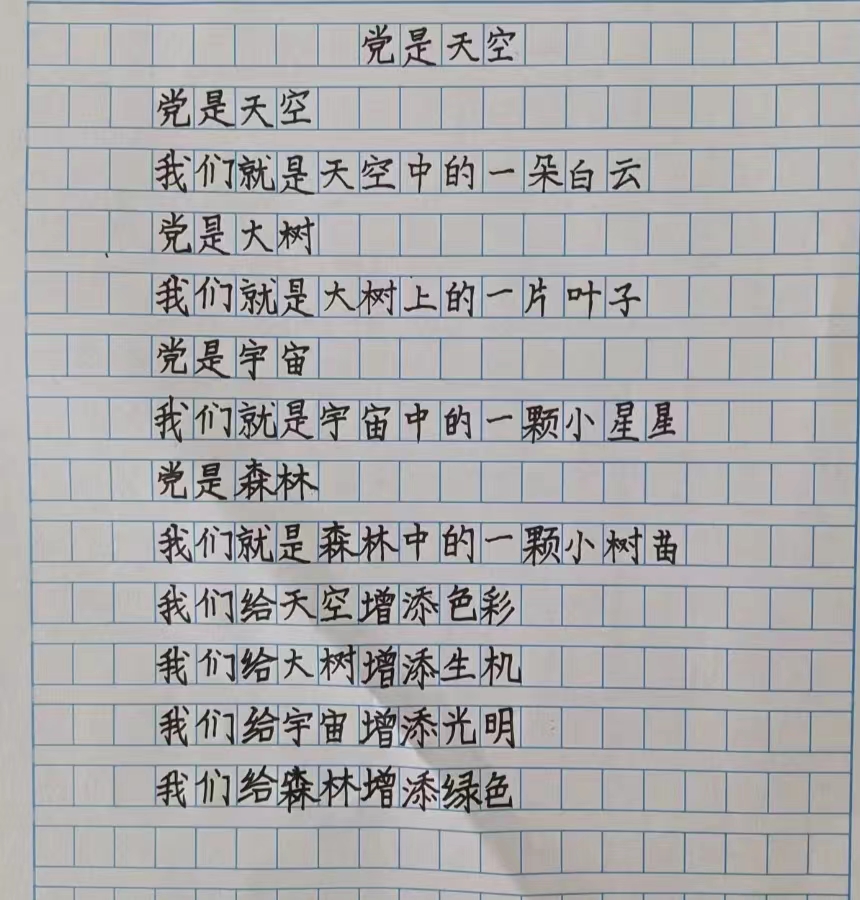 党是天空
党是天空
我们就是天空中的一朵白云
党是大树
我们就是大树上的一片叶子
党是宇宙
我们就是宇宙中的一颗小星星
党是森林
我们就是森林中的一颗小树苗
我们给天空增添色彩
我们给大树增添生机
我们给宇宙增添光明
我们给森林增添绿色